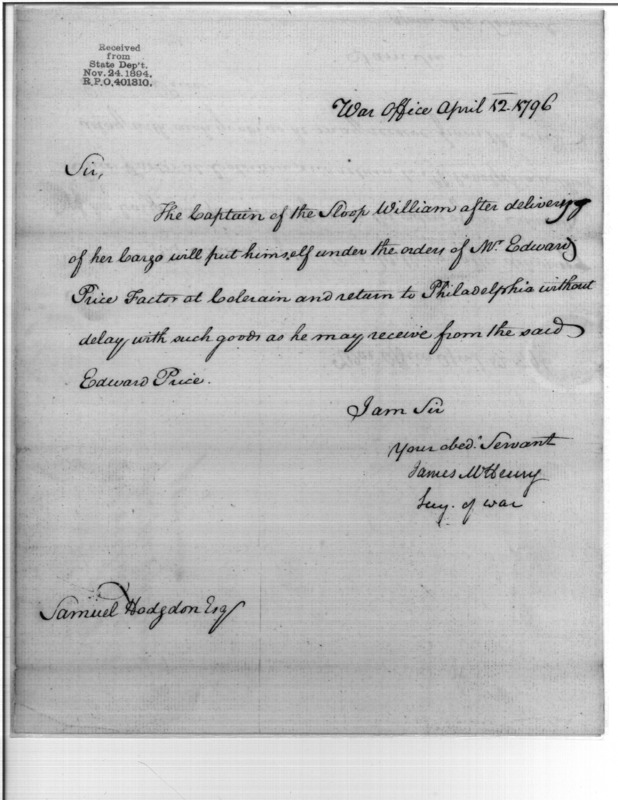 Received
from
State Dep't.
Nov. 24. 1894.
R.P.O. 401310.
War Office April 12. 1796
Sir,
The Captain of the Sloop William after delivery
of her Cargo will put himself under the orders of Mr. Edward
Price Factor at Colerain and return to Philadelphia without
delay, with such goods as he may receive from the said
Edward Price.
I am Sir
Your obedt. Servant
James McHenry
Secy. of war
Samuel Hodgdon Esq